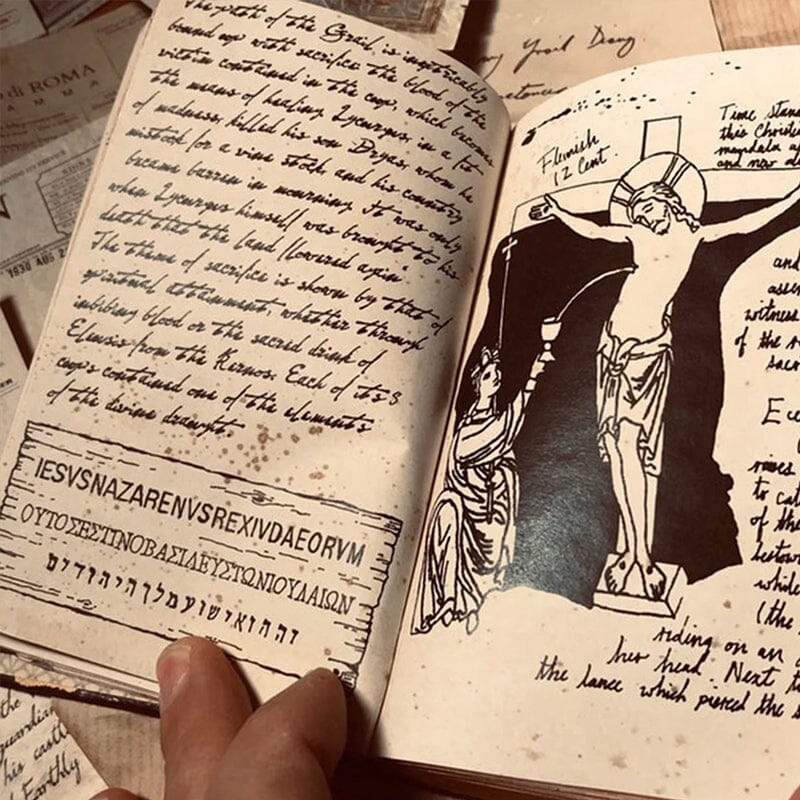 The path of the Grail, is inextricably
bound up with sacrifice the blood of the
victim contained in the cup, which becomes
the means of healing Lycurgus, in a fit
of madness, killed his son Dryas, whom he
mistook for a vine stock, and his country
became barren in mourning. It was only
when Lycurgus himself was brought to his
death that the land flowered again"
The theme of sacrifice is shown by that of
spiritual attainment, whether through
imbibing blood or the sacred drink of
Elensis from the Kernos. Each of it's 8
cup's contained one of the elements
of the divine draught.
IESVSNAZARENVSREXIVDAEORVM
ΟΥΤΟΣΕΣΤΙΝΟΒΑΣΙΛΕΥΣΤΩΝΙΟΥΛΑΙΩΝ
זההואישועמלךהיהודים
Flemish
12 Cent.
Time
this
mandala
and now
and
witness
of the
riding on an
her head. Next
the lance which pierced the
of the
while
(the
to
di ROMA
1930 AUG
my Grail Diary
the
guardian
his castle
Earthly